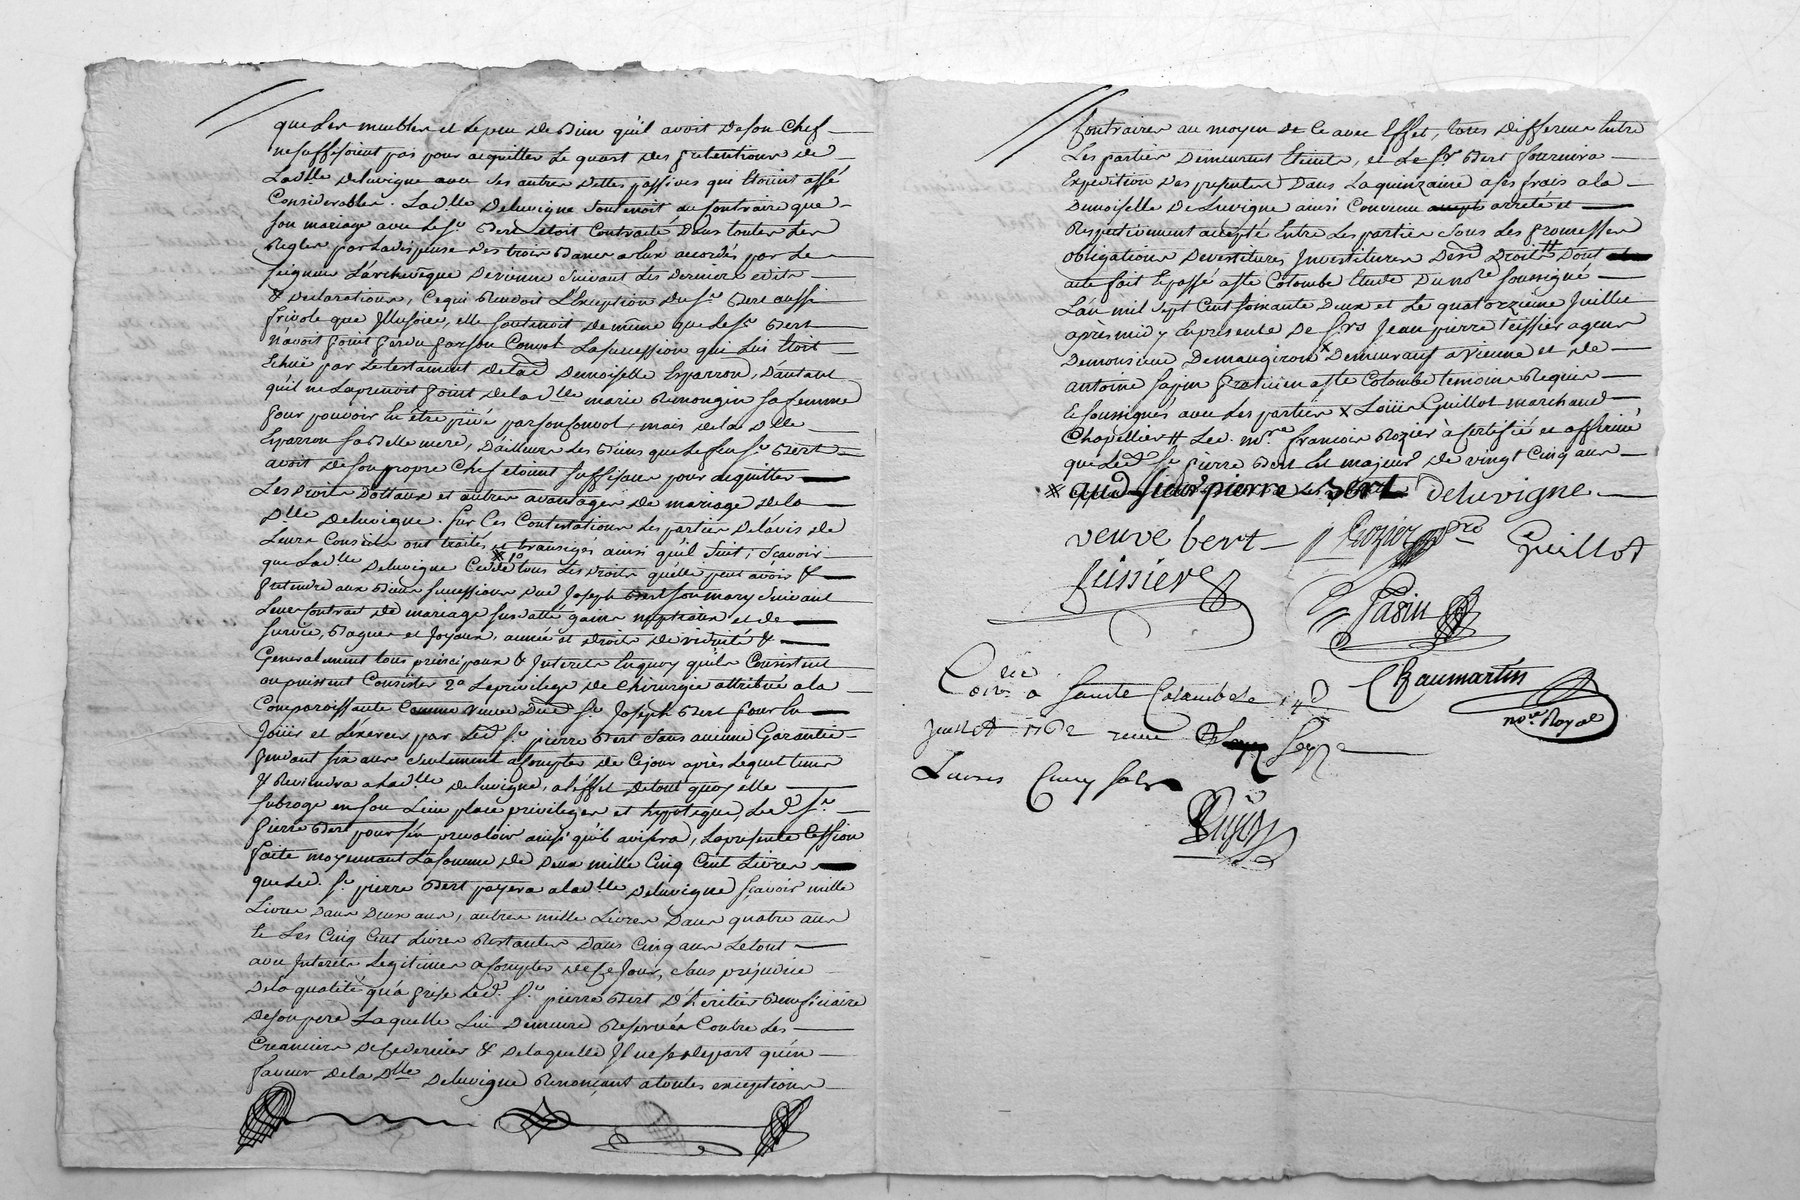 que les meubles et le peu de bien qu'il avoit de son chef
ne suffisoient pas pour acquitter le quart des pretentions de
lad.lle deluvigne avec ses autres dettes passives qui étoient assé
Considerables. Lad.lle deluvigne soutenoit au contraire que
son mariage avec le Sr. Bert étoit Contracté dans toutes les
Regles par la dispense des trois bancs a eux accordés par le
seigneur L'archevêque de vienne suivant les derniers edits
& declarations, ce qui rendoit L'exception du Sr. Bert aussi
frivole que Illusoire, elle soutenoit de même que le Sr. Bert
n'avoit point perdu par son Convol la succession qui lui étoit
échuë par le testament de lad. demoiselle Esparron, d'autant
qu'il ne la prenoit point de la d.lle marie Remongin sa femme
pour pouvoir en etre privé par son Convol, mais de la d.lle
Esparron sa belle mere, d'ailleurs les biens que le feu Sr. Bert
avoit de son propre chef etoient suffisans pour acquitter
les droits dottaux et autres avantages de mariage de la
d.lle deluvigne. Sur ces Contestations les parties de l'avis de
leurs Conseils ont traités et transigés ainsi qu'il suit; scavoir
que lad.lle deluvigne Cede 1o tous les droits qu'elle peut avoir &
pretendre aux biens succession dud. Joseph Bert son mary suivant
leur Contrat de mariage susdatté gains nuptiaux et de
survie, Bagues et Joyaux, année et droits de viduité &
Generalement tous principaux & Interets en quoy qu'ils Consistent
ou puissent Consister 2o Le privilege de chirurgie attribué a la
Comparoissante Comme veuve dud. Sr. Joseph Bert pour en
Jouir et l'exercer par led. Sr. pierre Bert sans aucune Garantie
pendant six ans seulement a Compter de ce jour après lequel tems
Il Reviendra a lad.lle deluvigne, a l'effet de tout quoy elle
subroge en son lieu place privileges et hypotéque, led. Sr.
pierre Bert pour s'en prevaloir ainsi qu'il avisera, la presente Cession
faite moyennant la somme de deux mille Cinq Cent Livres
que led. Sr. pierre Bert payera a lad.lle deluvigne, sçavoir mille
Livres dans deux ans, autres mille Livres dans quatre ans
et les Cinq Cent Livres Restantes dans Cinq ans le tout
avec Interets Legitimes a Compter de ce Jour, sans prejudice
de la qualité qu'a prise led. Sr. pierre Bert d'héritier beneficiaire
de son pere Laquelle lui demeure Reservée Contre les
Creanciers de ce dernier & de laquelle Il ne se depart qu'en
faveur de la d.lle deluvigne Renonçant a toutes exceptions
Contraires au moyen de ce avec Effet, tous differens Entre
Les parties demeurent Eteints, et le Sr. Bert fournira
Expedition des presentes dans la quinzaine a ses frais a la
demoiselle deluvigne ainsi Convenu arreté et
Respectivement accepté Entre les parties sous les promesses
obligations devestitures Investitures desd. droits # dont
acte fait et passé a Ste Colombe Etude du nore soussigné
L'an mil sept Cent soixante deux et le quatorzieme Juillet
après midy En presence de Srs Jean pierre teissier agent
de monsieur de maugiron x demeurant a vienne et de
antoine Papin praticien a Ste Colombe temoins Requis
et soussignés avec les parties x Loüis Guillot marchand
Chapellier # Led. mre. francois Rozier à Certifié et affirmé
que led. Sr. pierre Bert est majeur de vingt Cinq ans
deluvigne
veuve bert Rozier Guillot
teissier
Papin
Chaumartin
nore. Royal
Colé a Sainte Colombe le 14e
Juillet 1762 reçu Sept
Livres Cinq sols